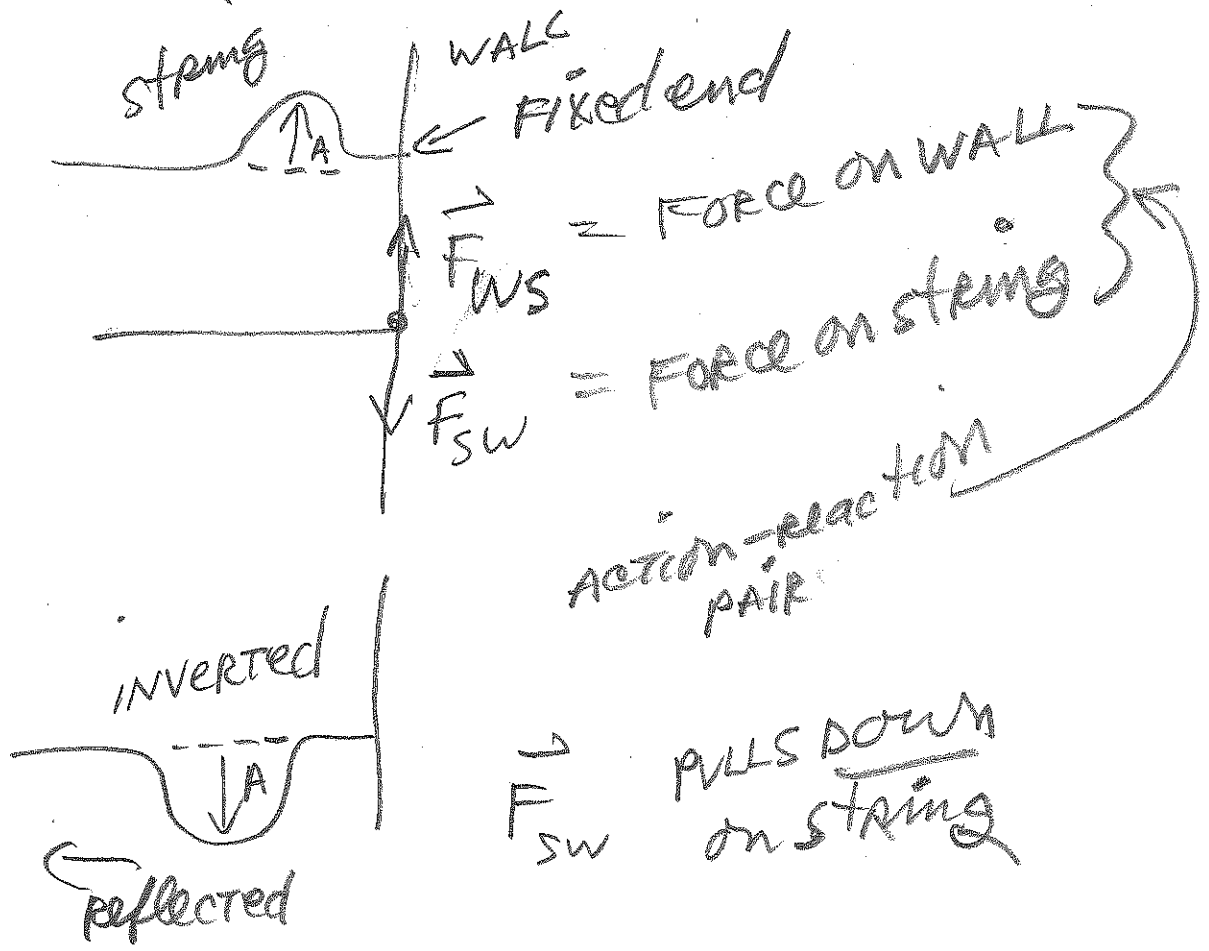 string
WALL
Fixed end
A
F WS = FORCE on WALL
F SW = FORCE on string
ACTION-REACTION
PAIR
INVERTED
A
reflected
F SW PULLS DOWN
on string